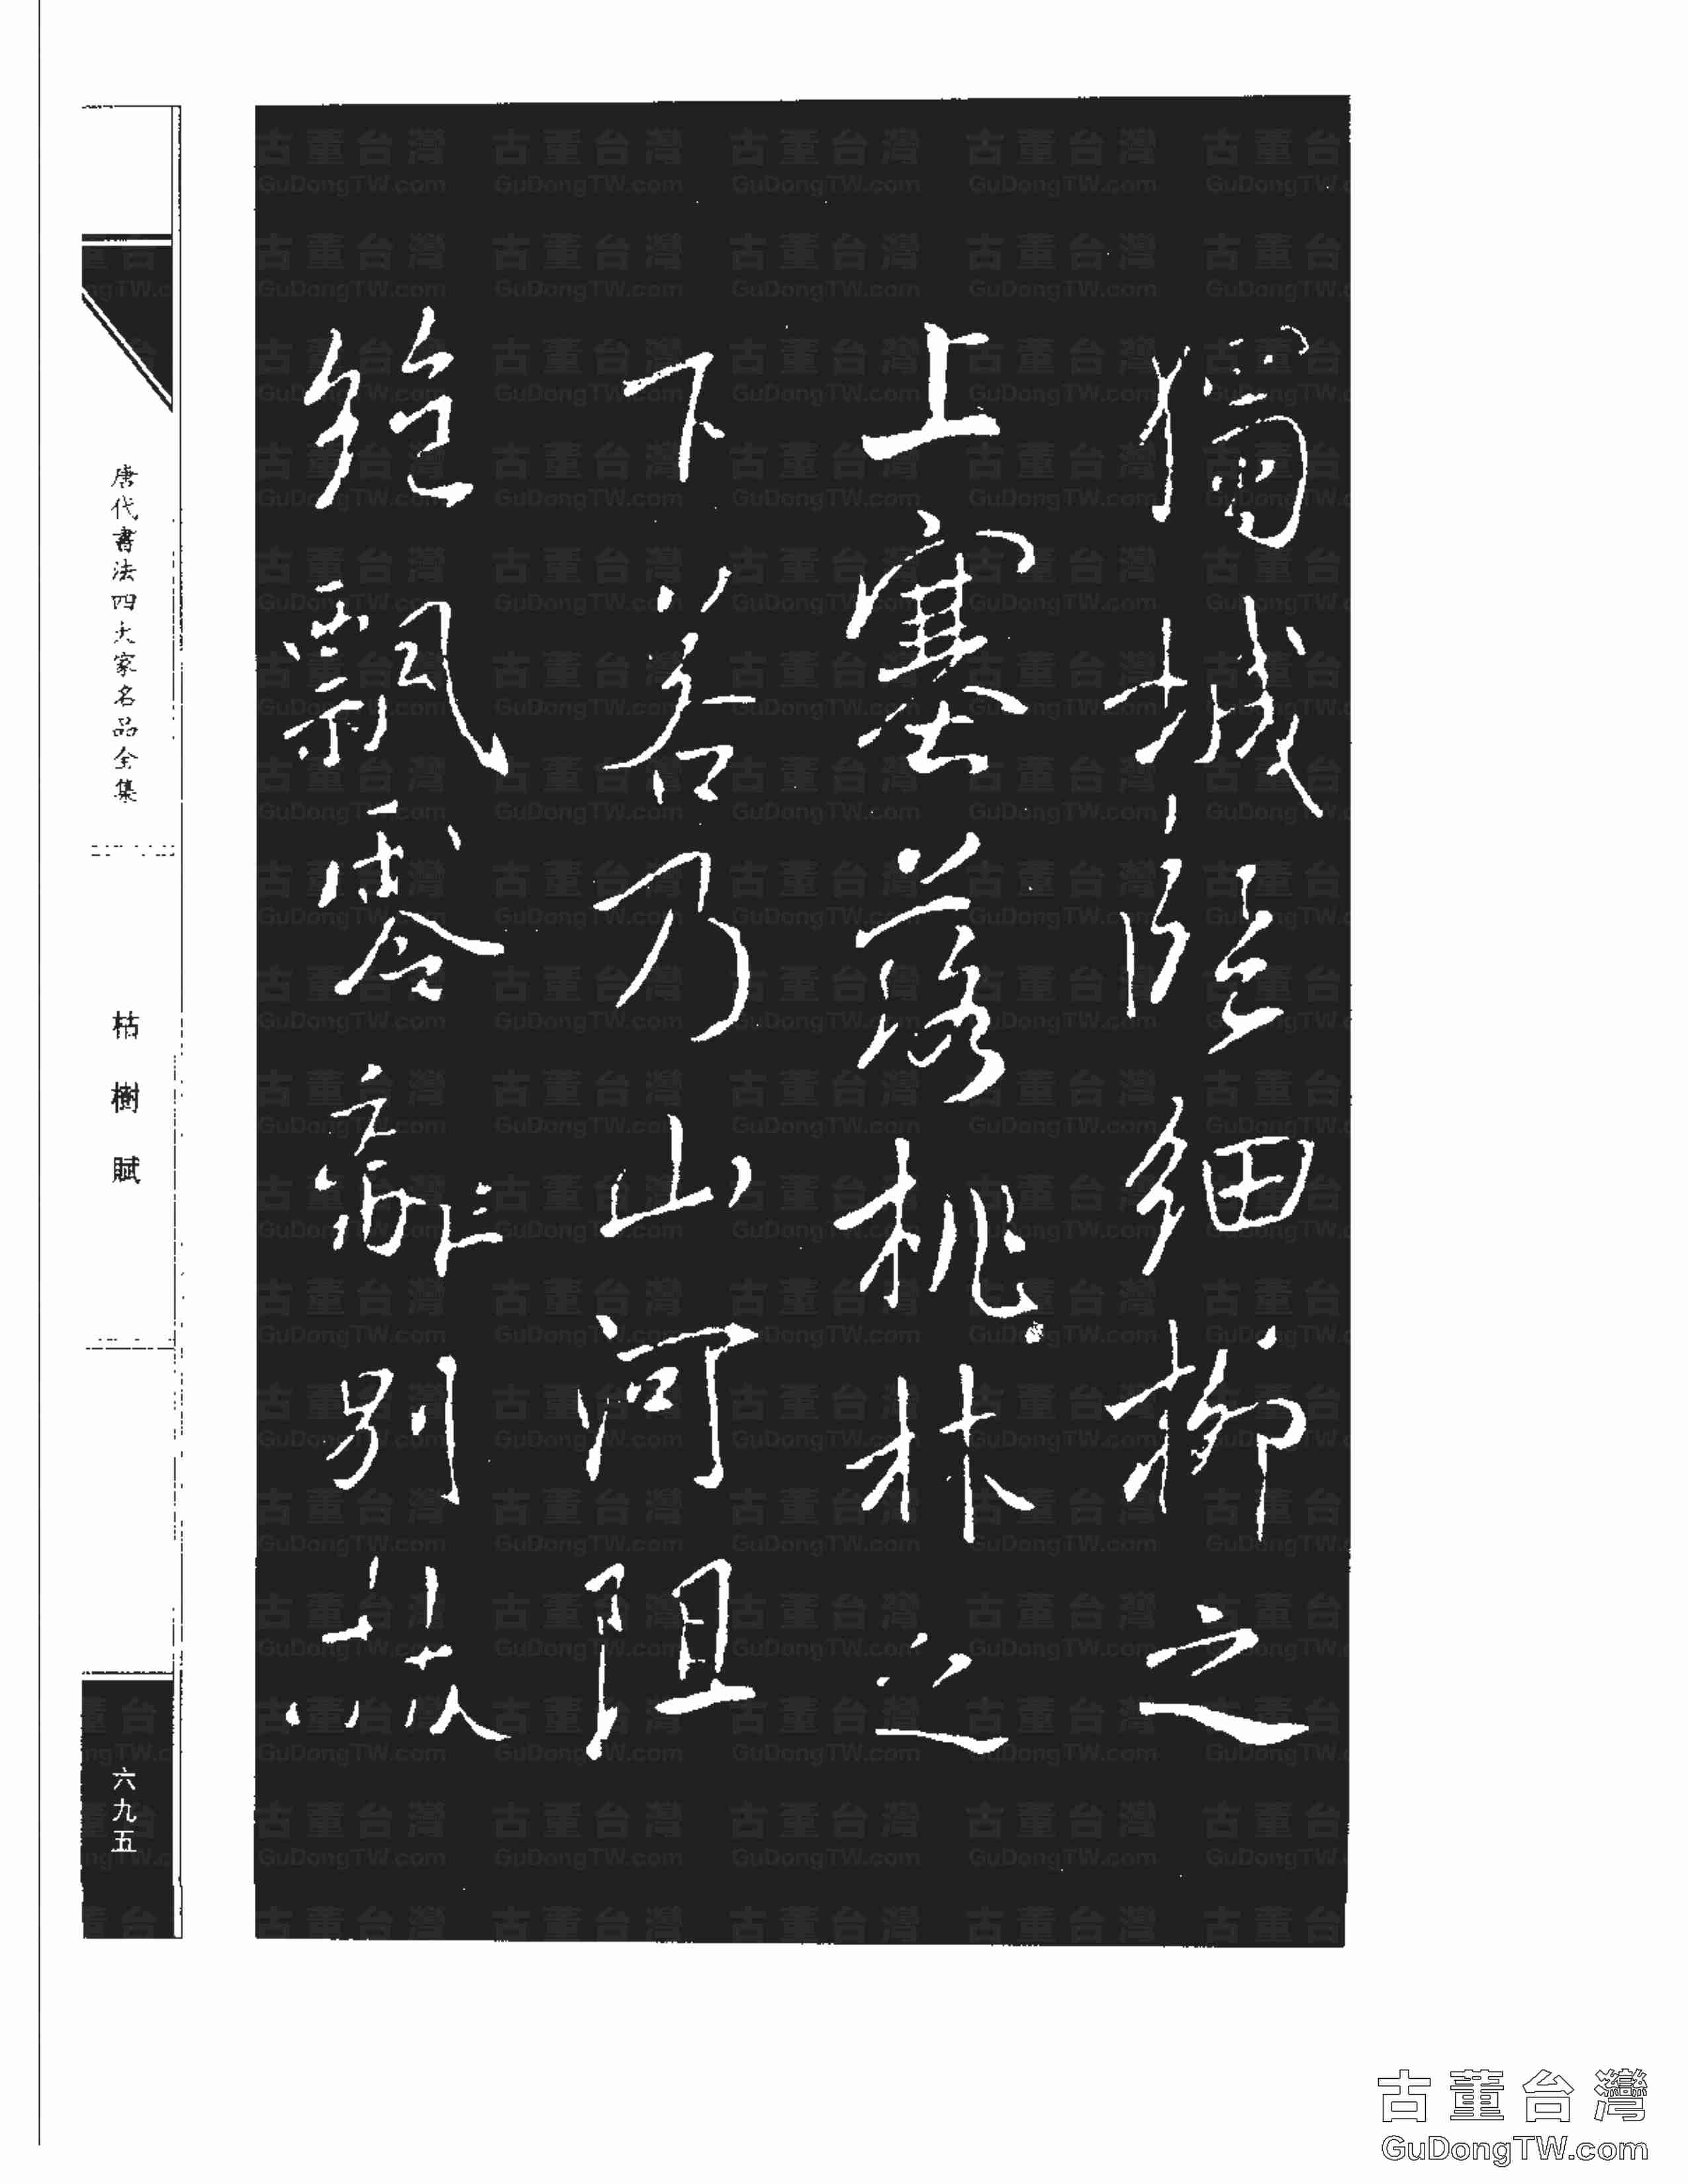 獨城臨細柳之
上塞落桃林之
下若乃山河阻
絕飄零離別拔
唐代書法四大家名品全集
枯樹賦
六九五
古董台灣
GuDongTW.com